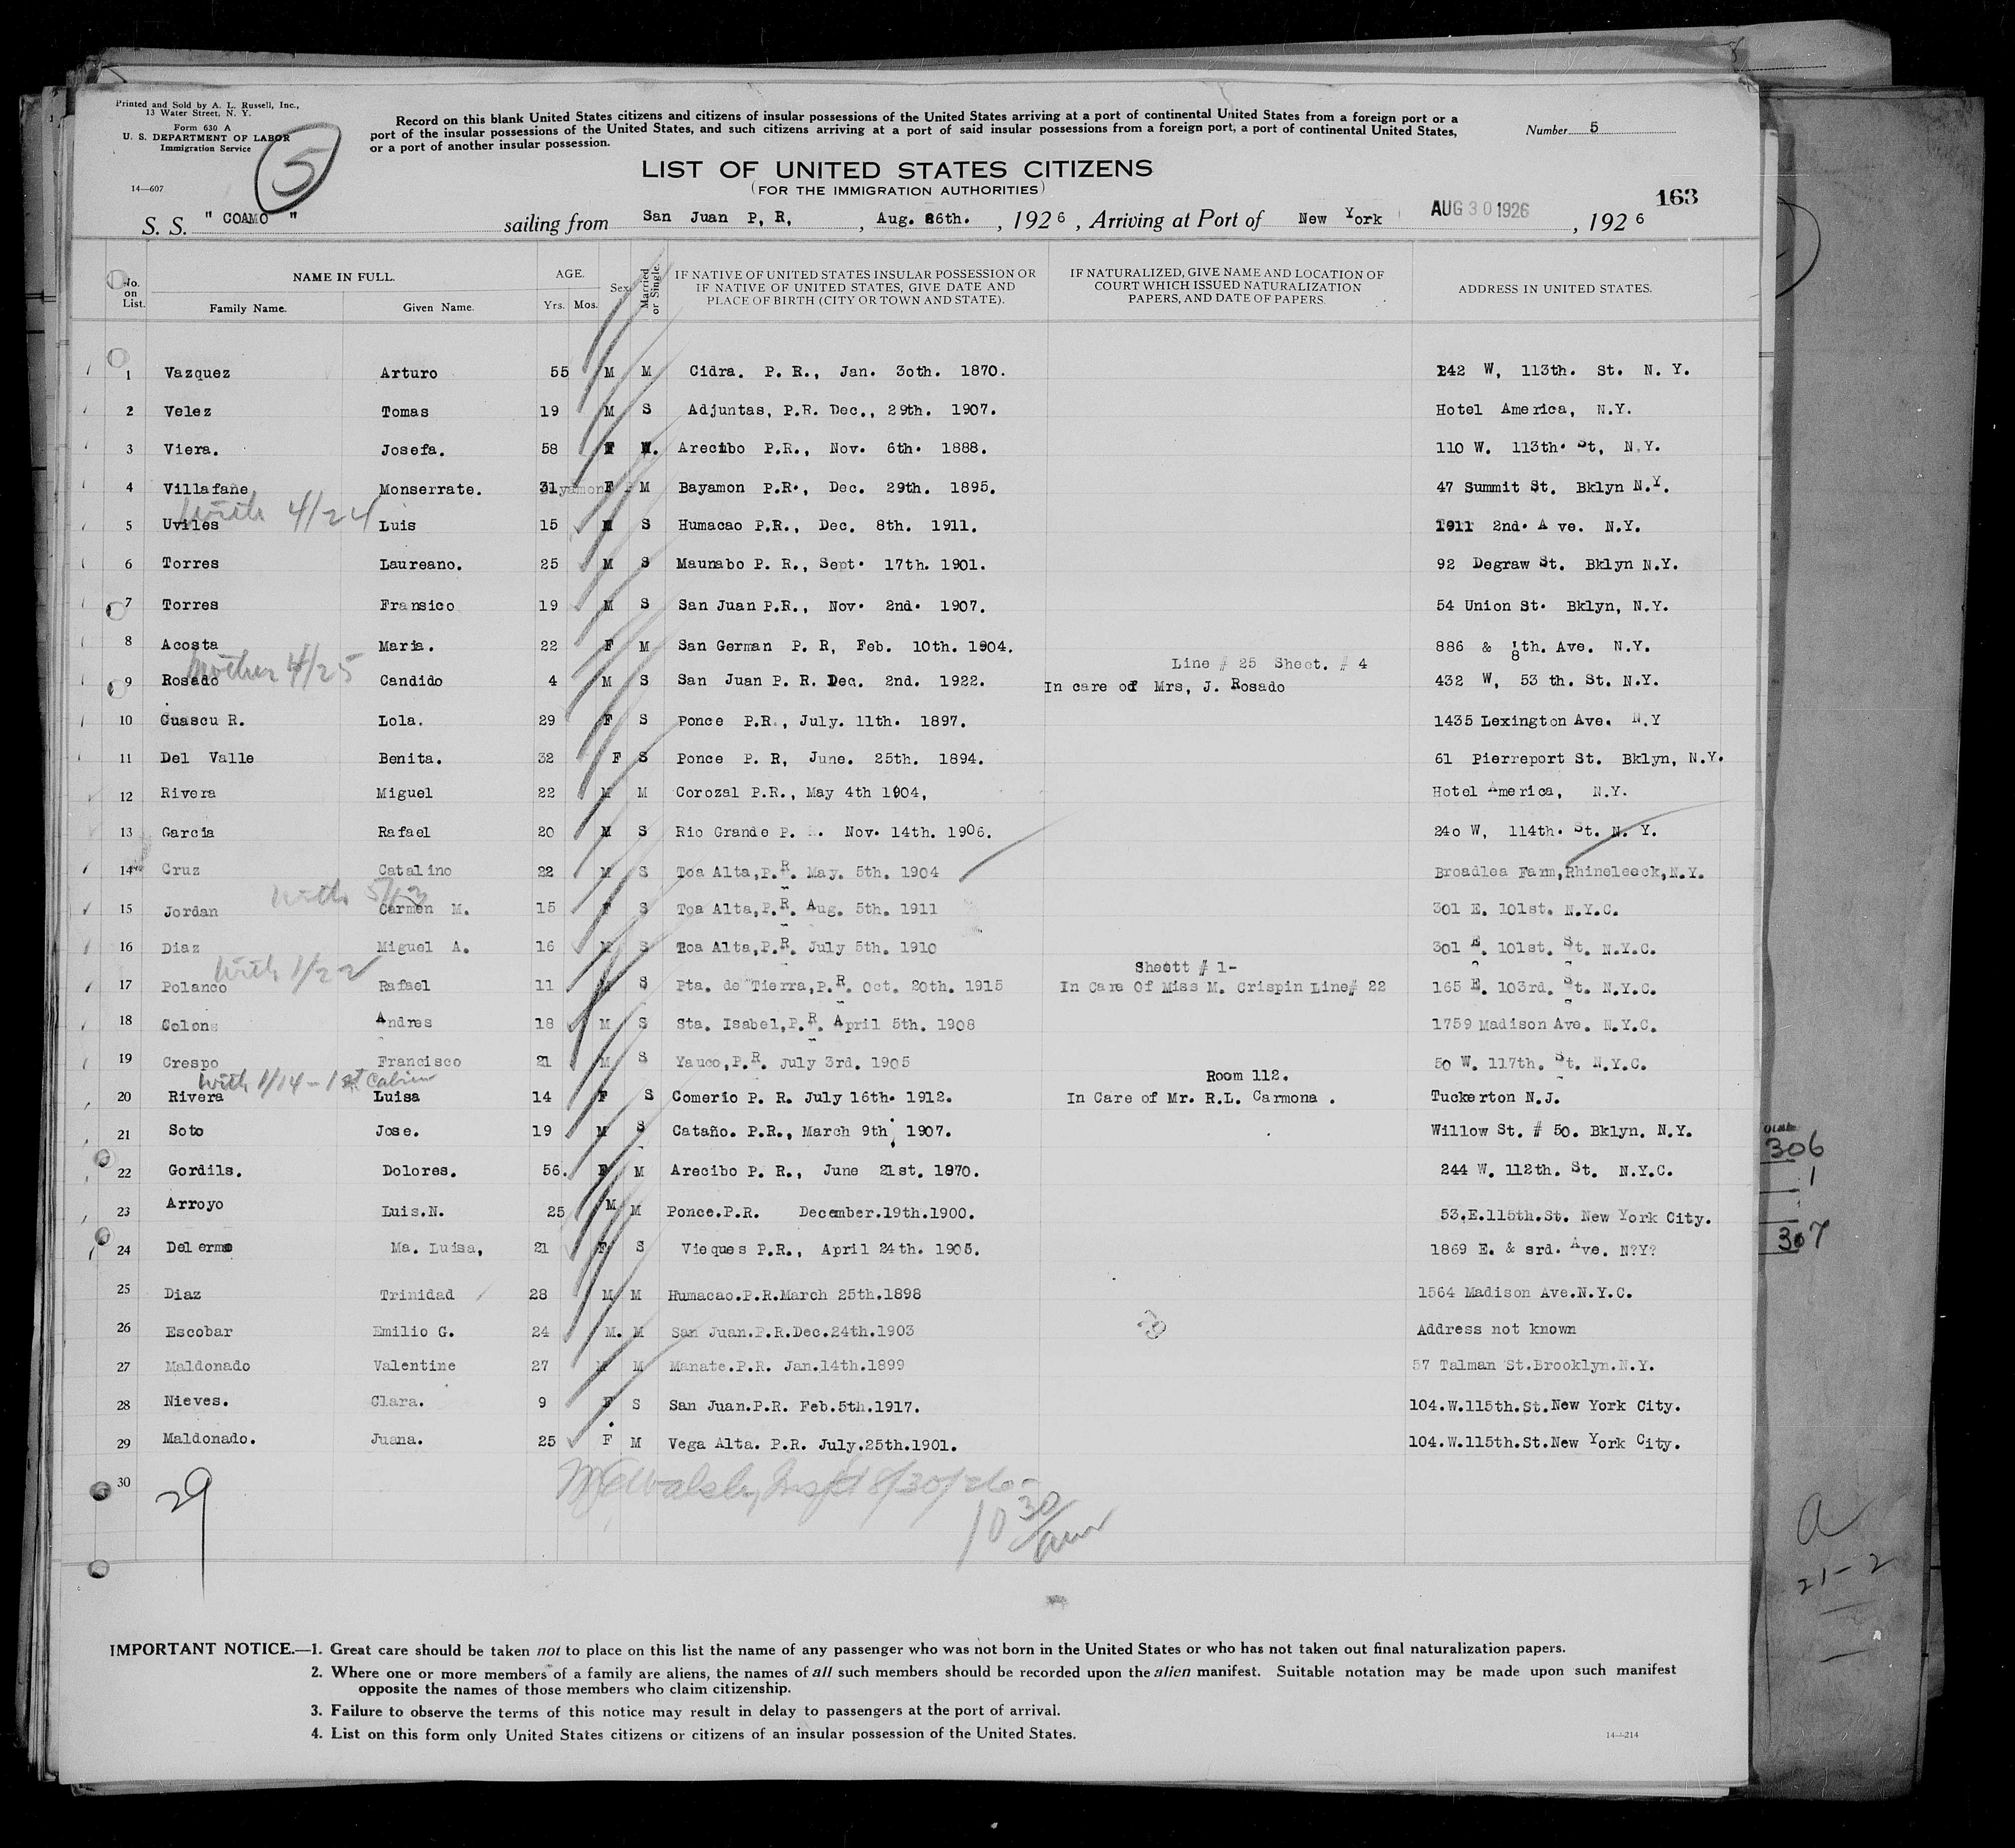 Printed and Sold by A. L. Russell, Inc.,
13 Water Street, N. Y.
Form 630 A
U. S. DEPARTMENT OF LABOR
Immigration Service
14—607
5
Record on this blank United States citizens and citizens of insular possessions of the United States arriving at a port of continental United States from a foreign port or a
port of the insular possessions of the United States, and such citizens arriving at a port of said insular possessions from a foreign port, a port of continental United States,
or a port of another insular possession.
Number 5
LIST OF UNITED STATES CITIZENS
(FOR THE IMMIGRATION AUTHORITIES)
163
S. S. " COAMO " sailing from San Juan P, R, , Aug. 26th. , 1926 , Arriving at Port of New York AUG 30 1926 , 1926
No. on List. NAME IN FULL. Family Name. Given Name. AGE. Yrs. Mos. Sex Married or Single. IF NATIVE OF UNITED STATES INSULAR POSSESSION OR IF NATIVE OF UNITED STATES, GIVE DATE AND PLACE OF BIRTH (CITY OR TOWN AND STATE). IF NATURALIZED, GIVE NAME AND LOCATION OF COURT WHICH ISSUED NATURALIZATION PAPERS, AND DATE OF PAPERS. ADDRESS IN UNITED STATES.
1 Vazquez Arturo 55 M M Cidra. P. R., Jan. 30th. 1870. 242 W, 113th. St. N. Y.
2 Velez Tomas 19 M S Adjuntas, P.R. Dec., 29th. 1907. Hotel America, N.Y.
3 Viera. Josefa. 58 F Arecibo P.R., Nov. 6th. 1888. 110 W. 113th. St, N.Y.
4 Villafañe Monserrate. 31 F M Bayamon P.R., Dec. 29th. 1895. 47 Summit St. Bklyn N.Y.
with 4/24
5 Uviles Luis 15 M S Humacao P.R., Dec. 8th. 1911. 1911 2nd. A ve. N.Y.
6 Torres Laureano. 25 M S Maunabo P. R., Sept. 17th. 1901. 92 Degraw St. Bklyn N.Y.
7 Torres Fransico 19 M S San Juan P.R., Nov. 2nd. 1907. 54 Union St. Bklyn, N.Y.
8 Acosta Maria. 22 F M San German P. R, Feb. 10th. 1904. 886 & 8th. Ave. N.Y.
Mother 4/25 Line # 25 Sheet. # 4
9 Rosado Candido 4 M S San Juan P. R. Dec. 2nd. 1922. In care of Mrs, J. Rosado 432 W, 53 th. St. N.Y.
10 Guascu R. Lola. 29 F S Ponce P.R., July. 11th. 1897. 1435 Lexington Ave. N.Y
11 Del Valle Benita. 32 F S Ponce P. R, June. 25th. 1894. 61 Pierreport St. Bklyn, N.Y.
12 Rivera Miguel 22 M M Corozal P.R., May 4th 1904, Hotel America, N.Y.
13 Garcia Rafael 20 M S Rio Grande P. R. Nov. 14th. 1906. 240 W, 114th. St. N. Y.
14 Cruz Catalino 22 M S Toa Alta,P.R. May. 5th. 1904 Broadlea Farm,Rhineleeck,N.Y.
with 5/13
15 Jordan Carmen M. 15 F S Toa Alta,P.R. Aug. 5th. 1911 301 E. 101st. N.Y.C.
16 Diaz Miguel A. 16 M S Toa Alta,P.R. July 5th. 1910 301 E. 101st. St. N.Y.C.
with 1/22 Sheett # 1-
17 Polanco Rafael 11 M S Pta. de Tierra,P.R. Oct. 20th. 1915 In Care Of Miss M. Crispin Line# 22 165 E. 103rd. St. N.Y.C.
18 Colons Andres 18 M S Sta. Isabel,P.R. April 5th. 1908 1759 Madison Ave. N.Y.C.
19 Crespo Francisco 21 M S Yauco,P.R. July 3rd. 1905 50 W. 117th. St. N.Y.C.
with 1/14 - 1st Cabin Room 112.
20 Rivera Luisa 14 F S Comerio P. R. July 16th. 1912. In Care of Mr. R.L. Carmona . Tuckerton N.J.
21 Soto Jose. 19 M S Cataño. P.R., March 9th. 1907. Willow St. # 50. Bklyn. N.Y.
22 Gordils. Dolores. 56. F M Arecibo P. R., June 21st. 1870. 244 W. 112th. St. N.Y.C.
23 Arroyo Luis.N. 25 M M Ponce.P.R. December.19th.1900. 53.E.115th.St. New York City.
24 Delermo Ma. Luisa, 21 F S Vieques P.R., April 24th. 1905. 1869 E. & srd. Ave. N?Y?
25 Diaz Trinidad 28 M M Humacao.P.R.March 25th.1898 1564 Madison Ave.N.Y.C.
26 Escobar Emilio G. 24 M. M San Juan.P.R.Dec.24th.1903 Address not known
27 Maldonado Valentine 27 M M Manate.P.R. Jan.14th.1899 57 Talman St.Brooklyn.N.Y.
28 Nieves. Clara. 9 F S San Juan.P.R. Feb.5th.1917. 104.W.115th.St.New York City.
29 Maldonado. Juana. 25 F M Vega Alta. P.R. July.25th.1901. 104.W.115th.St.New York City.
30
29
Walsh, Inspt 8/30/26
10 30/am
306
1
307
a
21-2
IMPORTANT NOTICE.—1. Great care should be taken not to place on this list the name of any passenger who was not born in the United States or who has not taken out final naturalization papers.
2. Where one or more members of a family are aliens, the names of all such members should be recorded upon the alien manifest. Suitable notation may be made upon such manifest
opposite the names of those members who claim citizenship.
3. Failure to observe the terms of this notice may result in delay to passengers at the port of arrival.
4. List on this form only United States citizens or citizens of an insular possession of the United States.
14—214